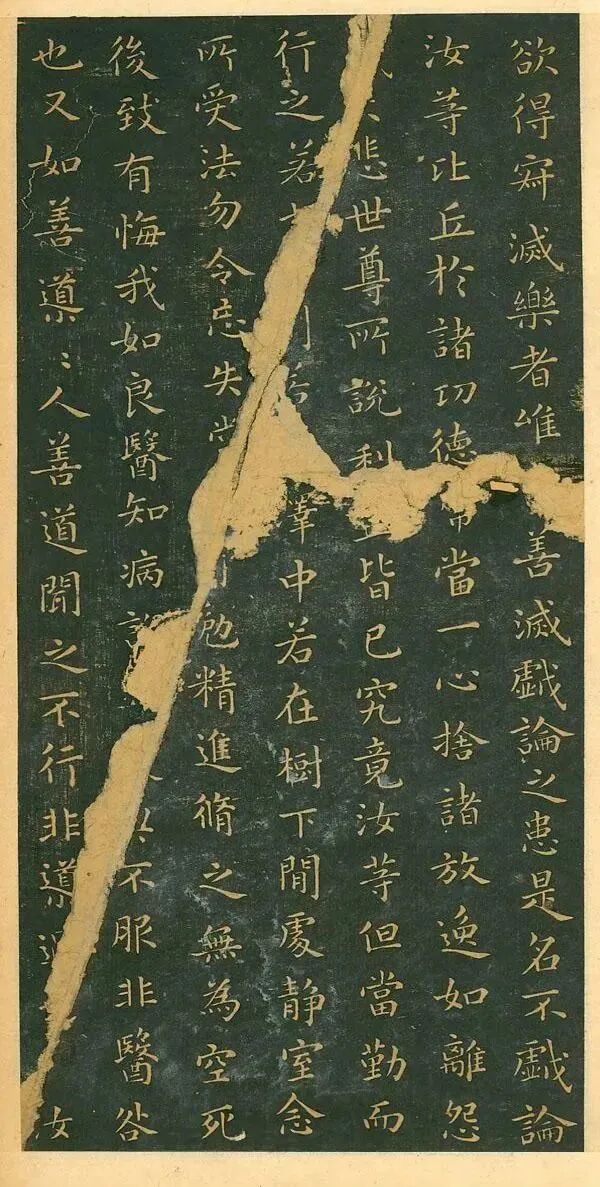 欲得寂滅樂者唯善滅戲論之患是名不戲論
汝等比丘於諸功德常當一心捨諸放逸如離怨
悲世尊所說利益皆已究竟汝等但當勤而
行之若澤中若在樹下閒處靜室念
所受法勿令忘失勉精進脩之無為空死
後致有悔我如良醫知病不服非醫咎
也又如善導〻人善道聞之不行非導過汝